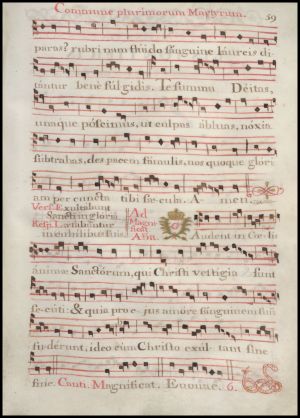 Commune plurimorum Martyrum.
59
paras? rubri nam fluido sanguine laureis di-
tantur bene fulgidis. Te summa Deitas,
unaque poscimus, ut culpas abluas, noxia
subtrahas, des pacem famulis, nos quoque glori-
am per cuncta tibi saecula. A- men.
Vers. Exultabunt
Sancti in gloria
Resp. Laetabuntur
in cubilibus suis.
Ad
Magni-
ficat
Ana.
Gaudent in Coelis
animae Sanctorum, qui Christi vestigia sunt
secuti: & quia pro e-jus amore sanguinem suum
fuderunt, ideo cum Christo exul- tant sine
fine. Canti. Magnificat. Euouae. 6.